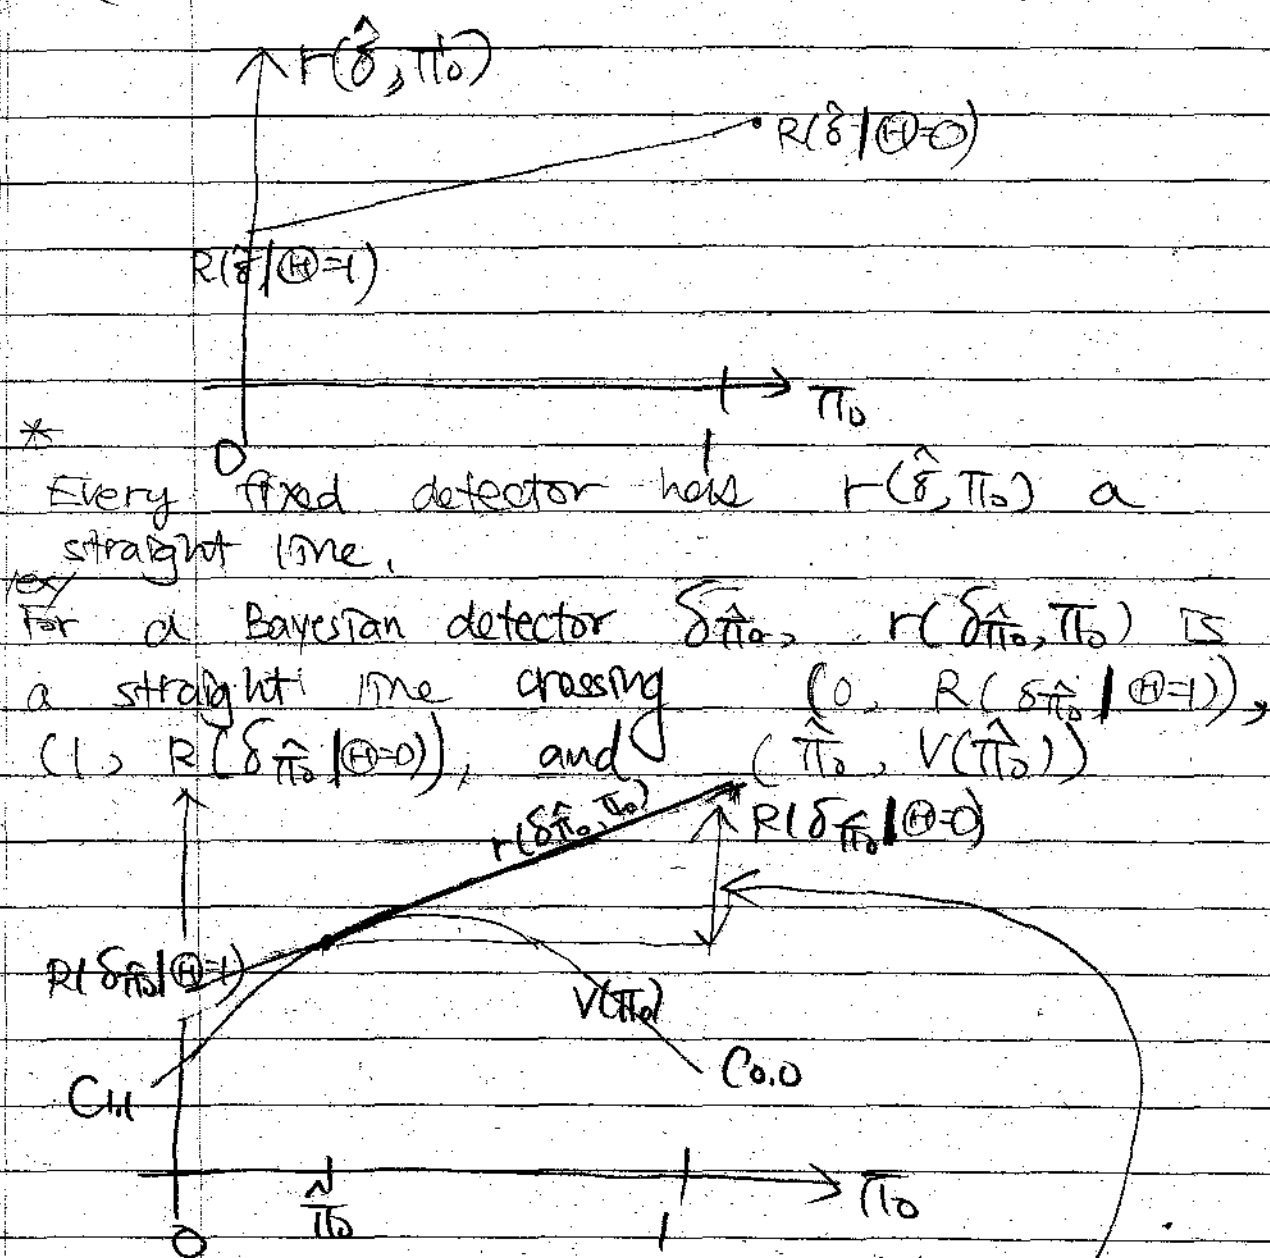 r(δ̂, π₀)
R(δ̂|Ⓗ=0)
R(δ̂|Ⓗ=1)
π₀
0
1
*
Every fixed detector has r(δ̂, π₀) a
straight line.
ex)
For a Bayesian detector δ_π̂₀, r(δ_π̂₀, π₀) is
a straight line crossing (0, R(δ_π̂₀|Ⓗ=1)),
(1, R(δ_π̂₀|Ⓗ=0)), and (π̂₀, V(π̂₀))
r(δ_π̂₀, π₀)
R(δ_π̂₀|Ⓗ=0)
R(δ_π̂₀|Ⓗ=1)
V(π₀)
C₁,₁
C₀,₀
π̂₀
π₀
0
1